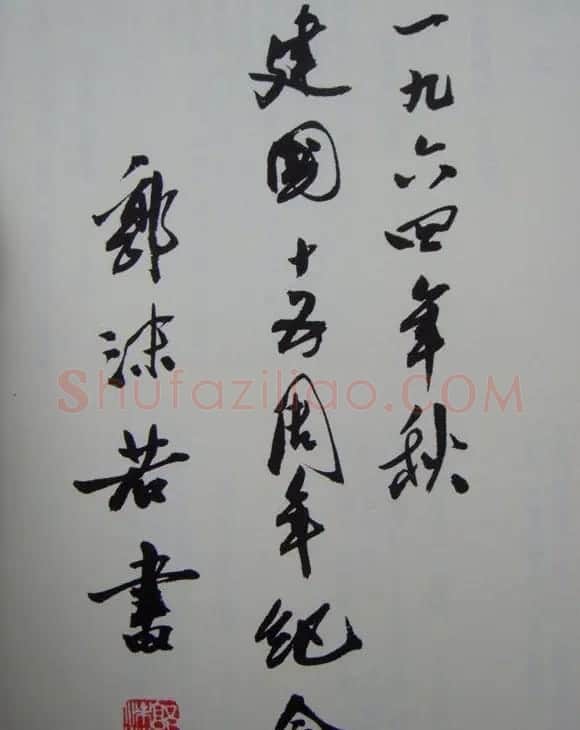 一九六四年秋
建國十五周年纪念
郭沫若書
Shufaziliao.COM